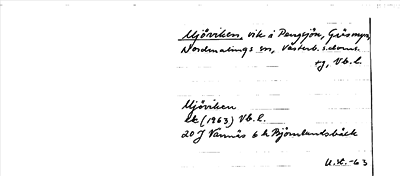 Mjöviken, vik i Pengsjön, Gräsmyr,
Nordmalings sn, Västerb. s. doms.
rg, Vb. l.
Mjöviken
ek (1963) Vb. l.
20 J Vännäs 6 h Björnlandsbäck
U.H.-63